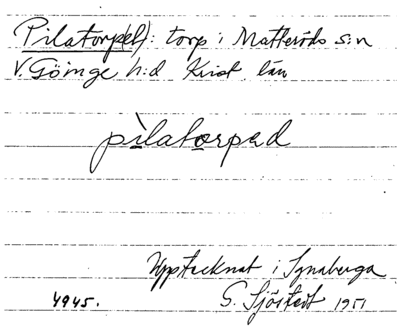 Pilatorp(et): torp i Matteröds s:n
V. Göinge h:d Krist. län
pilatorpad
Upptecknat i Ignaberga
4945. G. Sjöstedt 1951